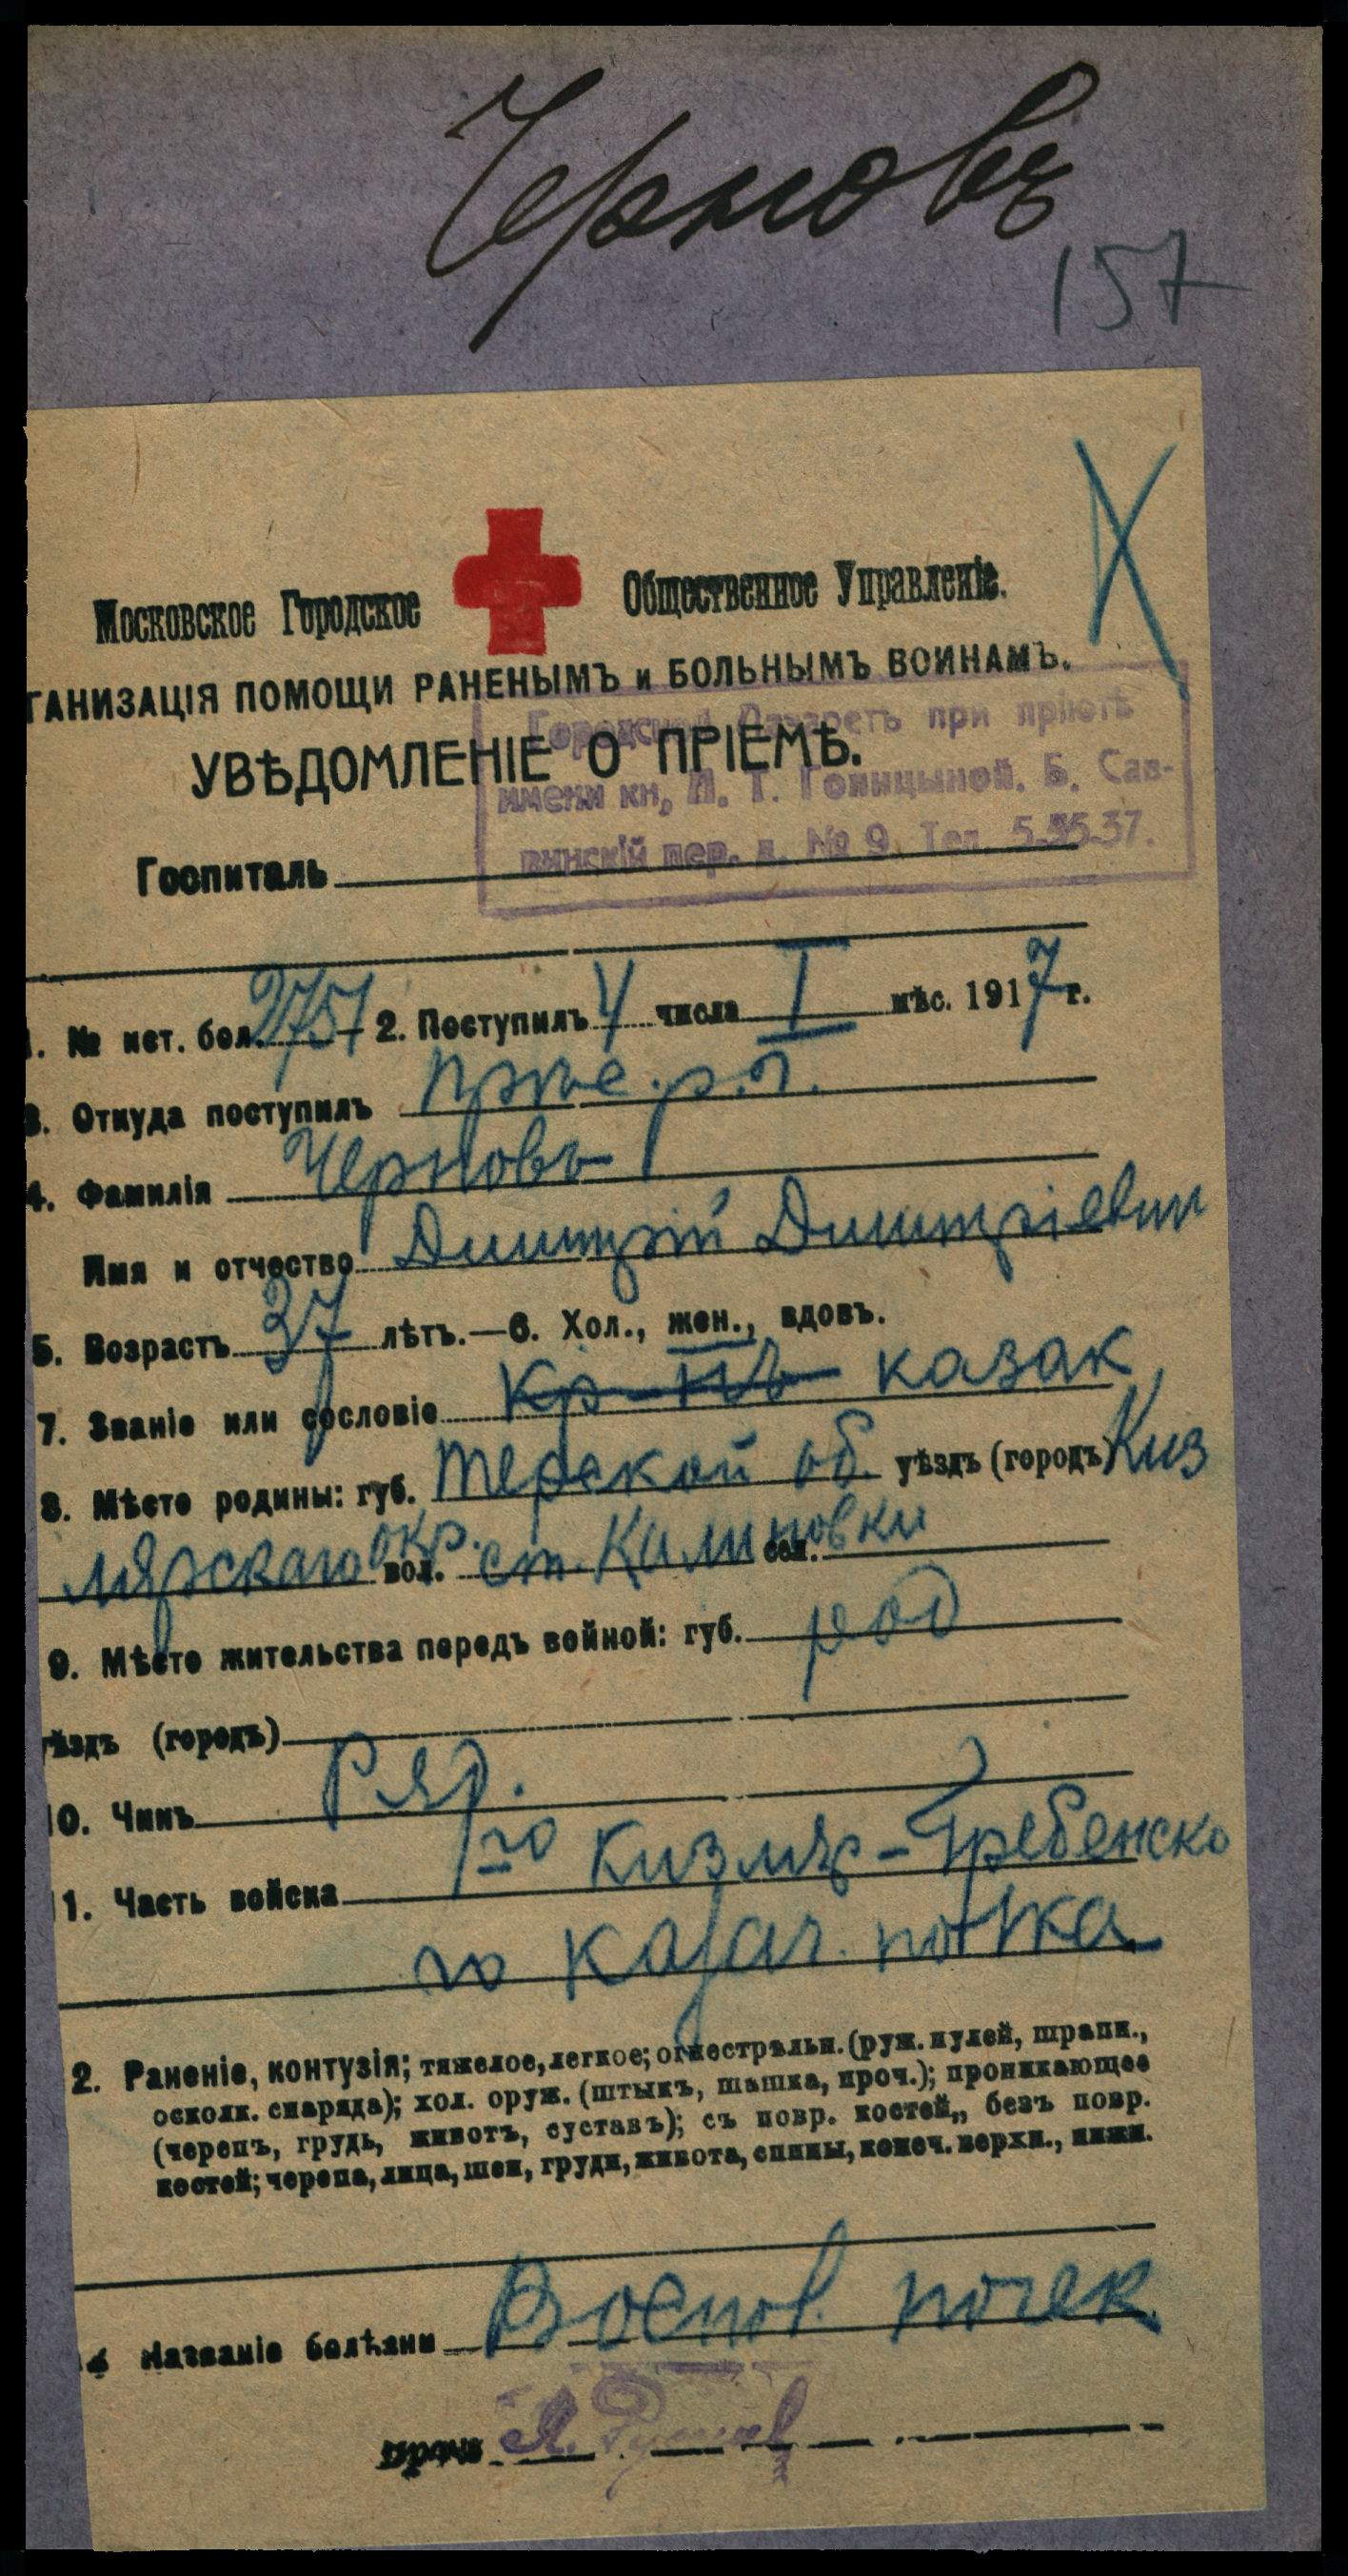 Черновъ
157
Московское Городское Общественное Управленіе.
ГАНИЗАЦІЯ ПОМОЩИ РАНЕНЫМЪ и БОЛЬНЫМЪ ВОИНАМЪ.
УВѢДОМЛЕНІЕ О ПРІЕМѢ.
Городской Лазаретъ при пріютѣ
имени кн. Л. Т. Голицыной. Б. Сав-
винскій пер. д. № 9. Тел. 5-55-37.
Госпиталь
1. № ист. бол. 2751 2. Поступилъ 4 числа I мѣс. 1917 г.
3. Откуда поступилъ р.п.
4. Фамилія Черновъ
Имя и отчество Димитрій Димитріевич
5. Возрастъ 37 лѣтъ.—6. Хол., жен., вдовъ.
7. Званіе или сословіе кр-нъ казак
8. Мѣсто родины: губ. Терской об. уѣздъ (городъ) Киз
лярскаго окр. вол. ст. Калиновки сел.
9. Мѣсто жительства передъ войной: губ. род
уѣздъ (городъ)
10. Чинъ Ряд.
11. Часть войска 1-го Кизляр-Гребенско
го казач. полка
2. Раненіе, контузія; тяжелое, легкое; огнестрѣльн. (руж. пулей, шрапн.,
осколк. снаряда); хол. оруж. (штыкъ, шашка, проч.); проникающее
(черепъ, грудь, животъ, суставъ); съ повр. костей,, безъ повр.
костей; черепа, лица, шеи, груди, живота, спины, конеч. верхн., нижн.
Названіе болѣзни Воспол. почек
врачъ